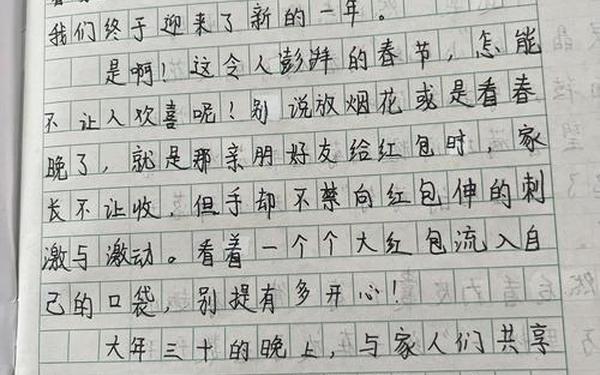 我们终于迎来了新的一年。
是啊！这令人澎湃的春节，怎能
不让人欢喜呢！别说放烟花或是看春
晚了，就是那亲朋好友给红包时，家
长不让收，但手却不禁向红包伸的刺
激与激动。看着一个个大红包流入自
己的口袋，别提有多开心！
大年三十的晚上，与家人们共享